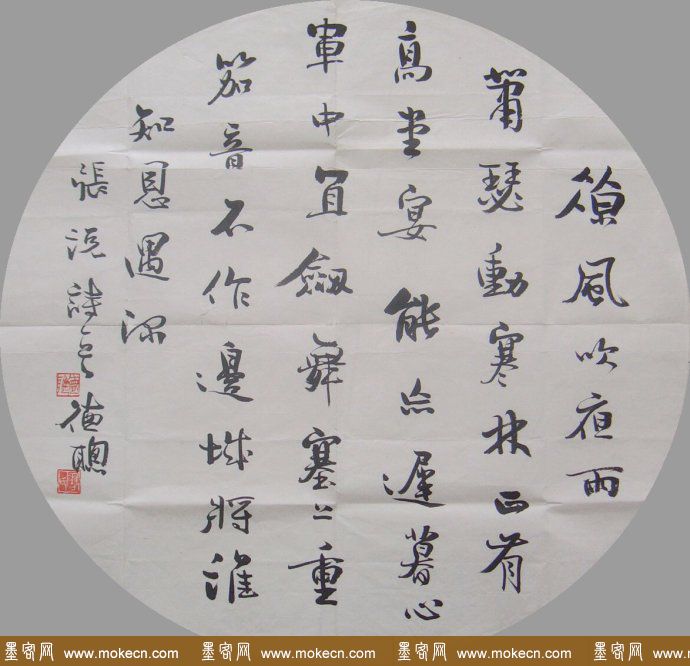 涼風吹夜雨
蕭瑟動寒林正有
高堂宴能忘遲暮心
軍中宜劍舞塞上重
笳音不作邊城將誰
知恩遇深
張説詩 德聰
墨客网 www.mokecn.com 墨客网 www.mokecn.com 墨客网 www.mokecn.com 墨客网 www.mokecn.com